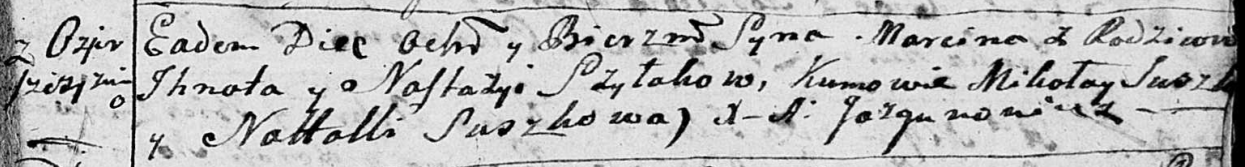 z Ozier Eadem Die Ochrł y Bierzmł Syna Marcina z Rodzicow
Ihnata y Nastazyi Szyłakow, Kumowie Mikołay Suszko
y Natalli Suszkowa) X-A: Jazgunowicz